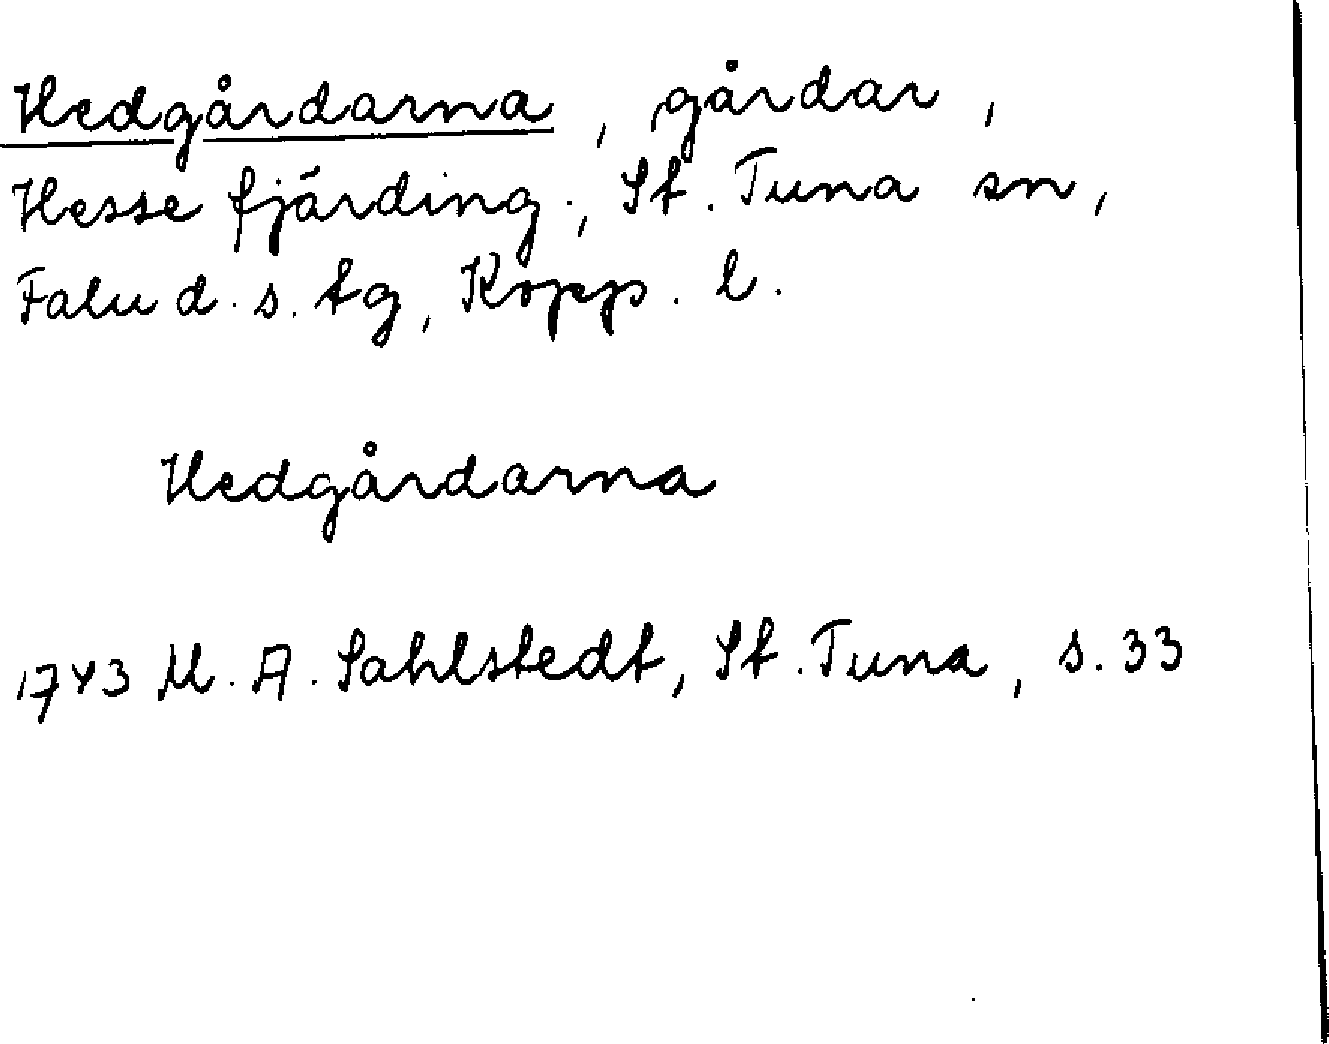 Hedgårdarna, gårdar,
Hesse fjärding., St. Tuna sn,
Falu d. s. tg, Kopp. l.
Hedgårdarna
1743 M. A. Sahlstedt, St. Tuna, s. 33